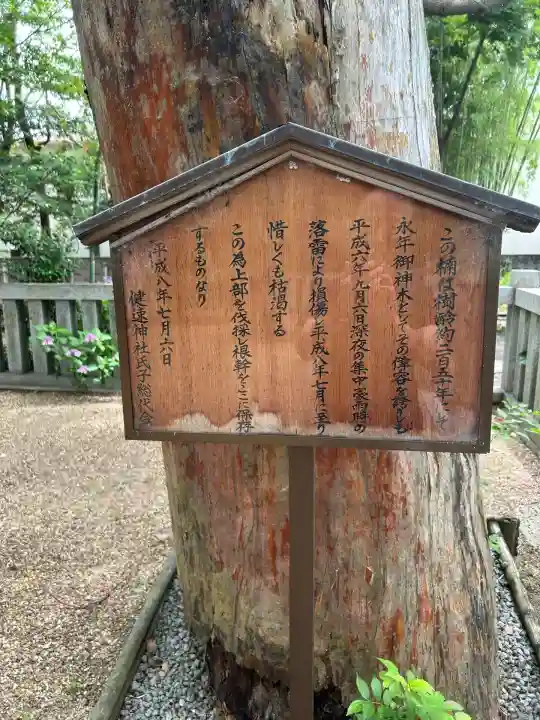 この楠は樹齢約二百五十年にして
永年御神木としてその偉容を誇しも
平成六年九月六日深夜の集中豪雨時の
落雷により損傷し平成八年七月に至り
惜しくも枯渇する
この為上部を伐採し根幹をここに保存
するものなり
平成八年七月二六日
健速神社氏子総代会